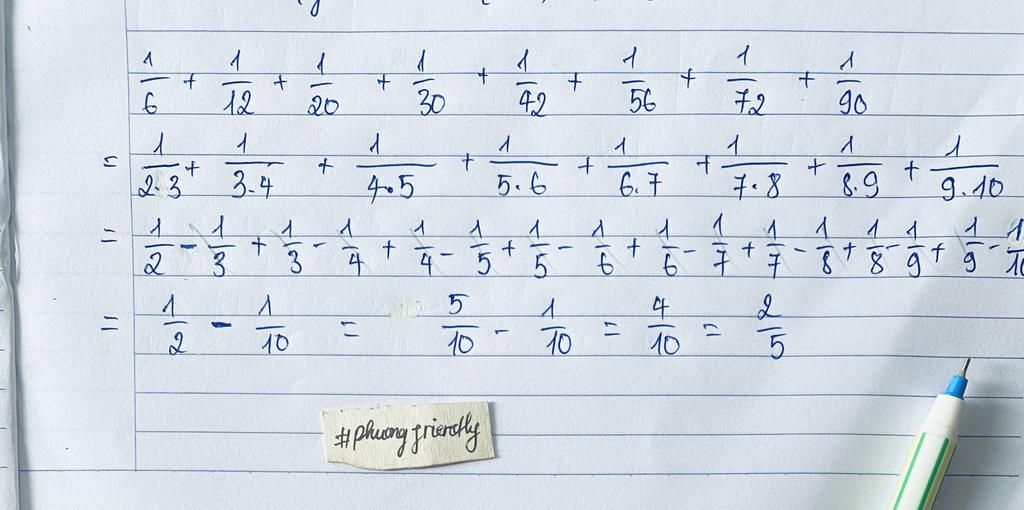 1/6 + 1/12 + 1/20 + 1/30 + 1/42 + 1/56 + 1/72 + 1/90
= 1/2.3 + 1/3.4 + 1/4.5 + 1/5.6 + 1/6.7 + 1/7.8 + 1/8.9 + 1/9.10
= 1/2 - 1/3 + 1/3 - 1/4 + 1/4 - 1/5 + 1/5 - 1/6 + 1/6 - 1/7 + 1/7 - 1/8 + 1/8 - 1/9 + 1/9 - 1/10
= 1/2 - 1/10 = 5/10 - 1/10 = 4/10 = 2/5
#phuong friendly